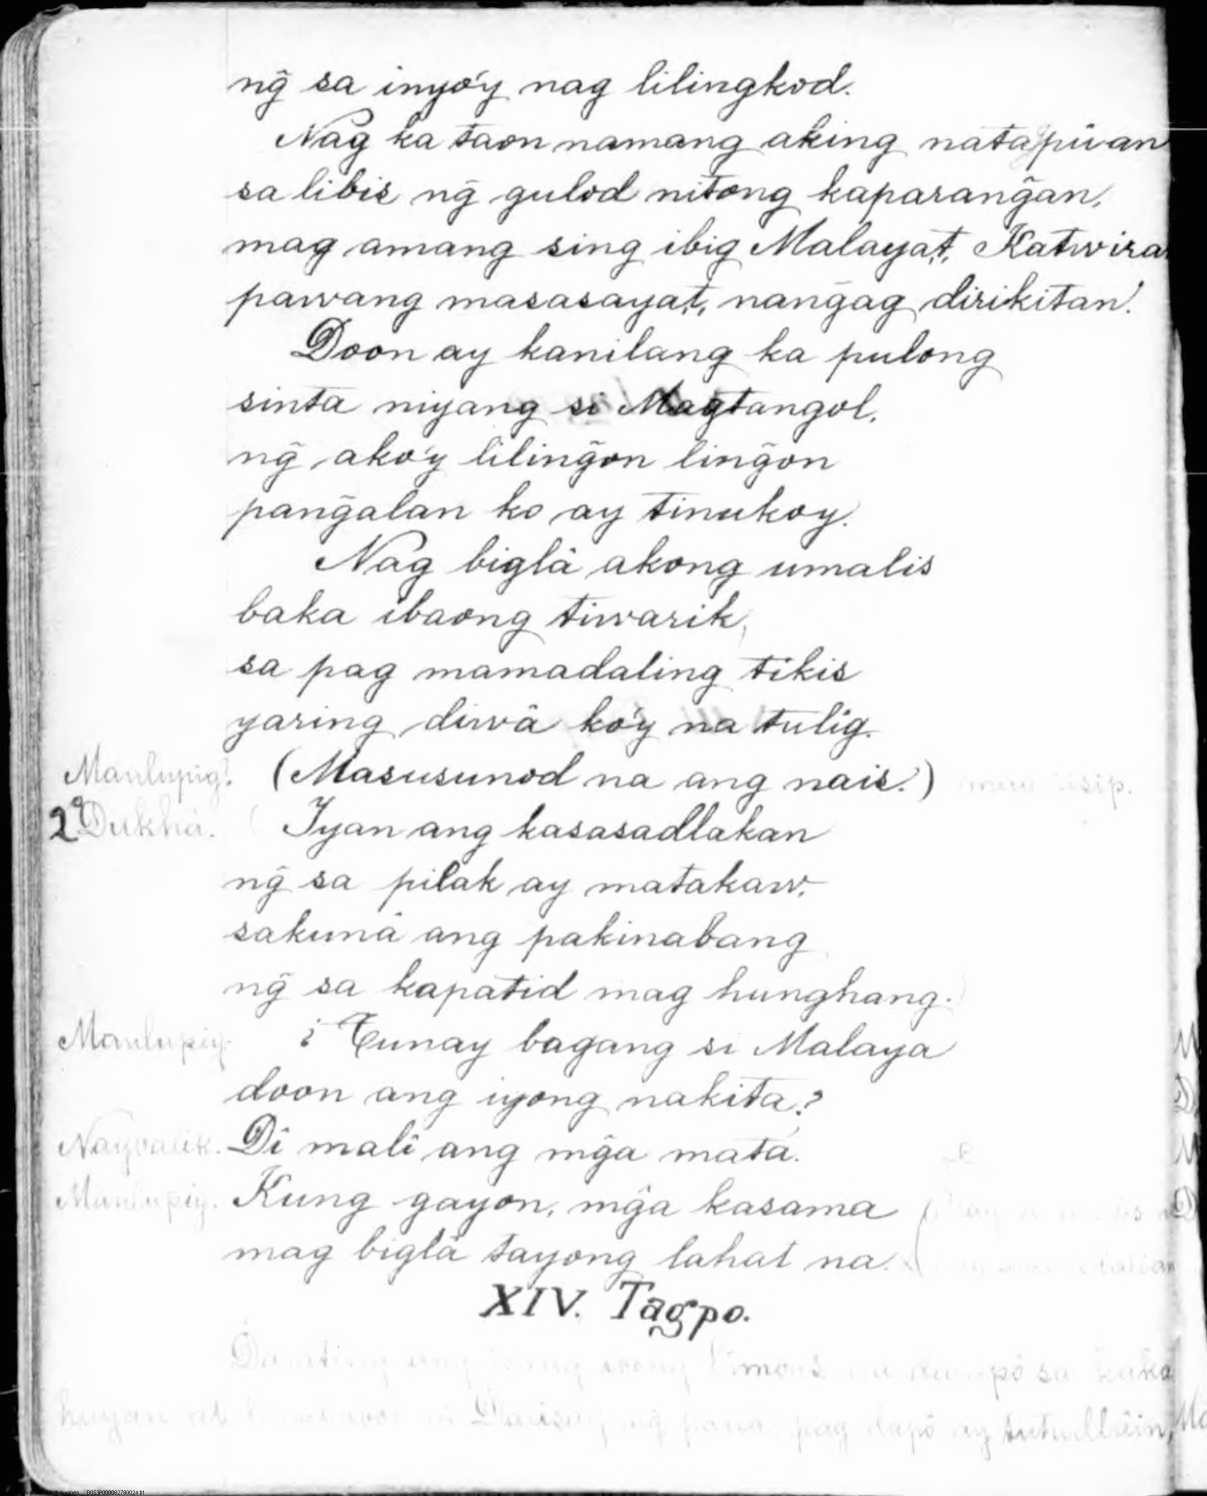 ng̃ sa inyo'y nag lilingkod.
Nag ka taon namang aking natatpuan
sa libis ng̃ gulod nitong kaparang̃an,
mag amang sing ibig Malaya,t, Katwiran
pawang masasaya,t, nang̃ag dirikitan!
Doon ay kanilang ka pulong
sinta niyang si Magtangol,
ng̃ ako'y liling̃on ling̃on
pang̃alan ko ay tinukoy.
Nag biglâ akong umalis
baka ibaong tiwarik,
sa pag mamadaling tikis
yaring diwâ ko'y na tulig.
Manlupig. (Masusunod na ang nais!) isip.
2º Dukhá. Iyan ang kasasadlakan
ng̃ sa pilak ay matakaw,
sakunâ ang pakinabang
ng̃ sa kapatid mag hunghang.
Manlupig. ¿Tunay bagang si Malaya
doon ang iyong nakita?
Nagbalik. Di malî ang mg̃a matá.
Manlupig. Kung gayon, mg̃a kasama
mag biglâ tayong lahat na.
XIV. Tagpo.
Darating ang isang ibong sa
ng̃ pana, pag dapó ay